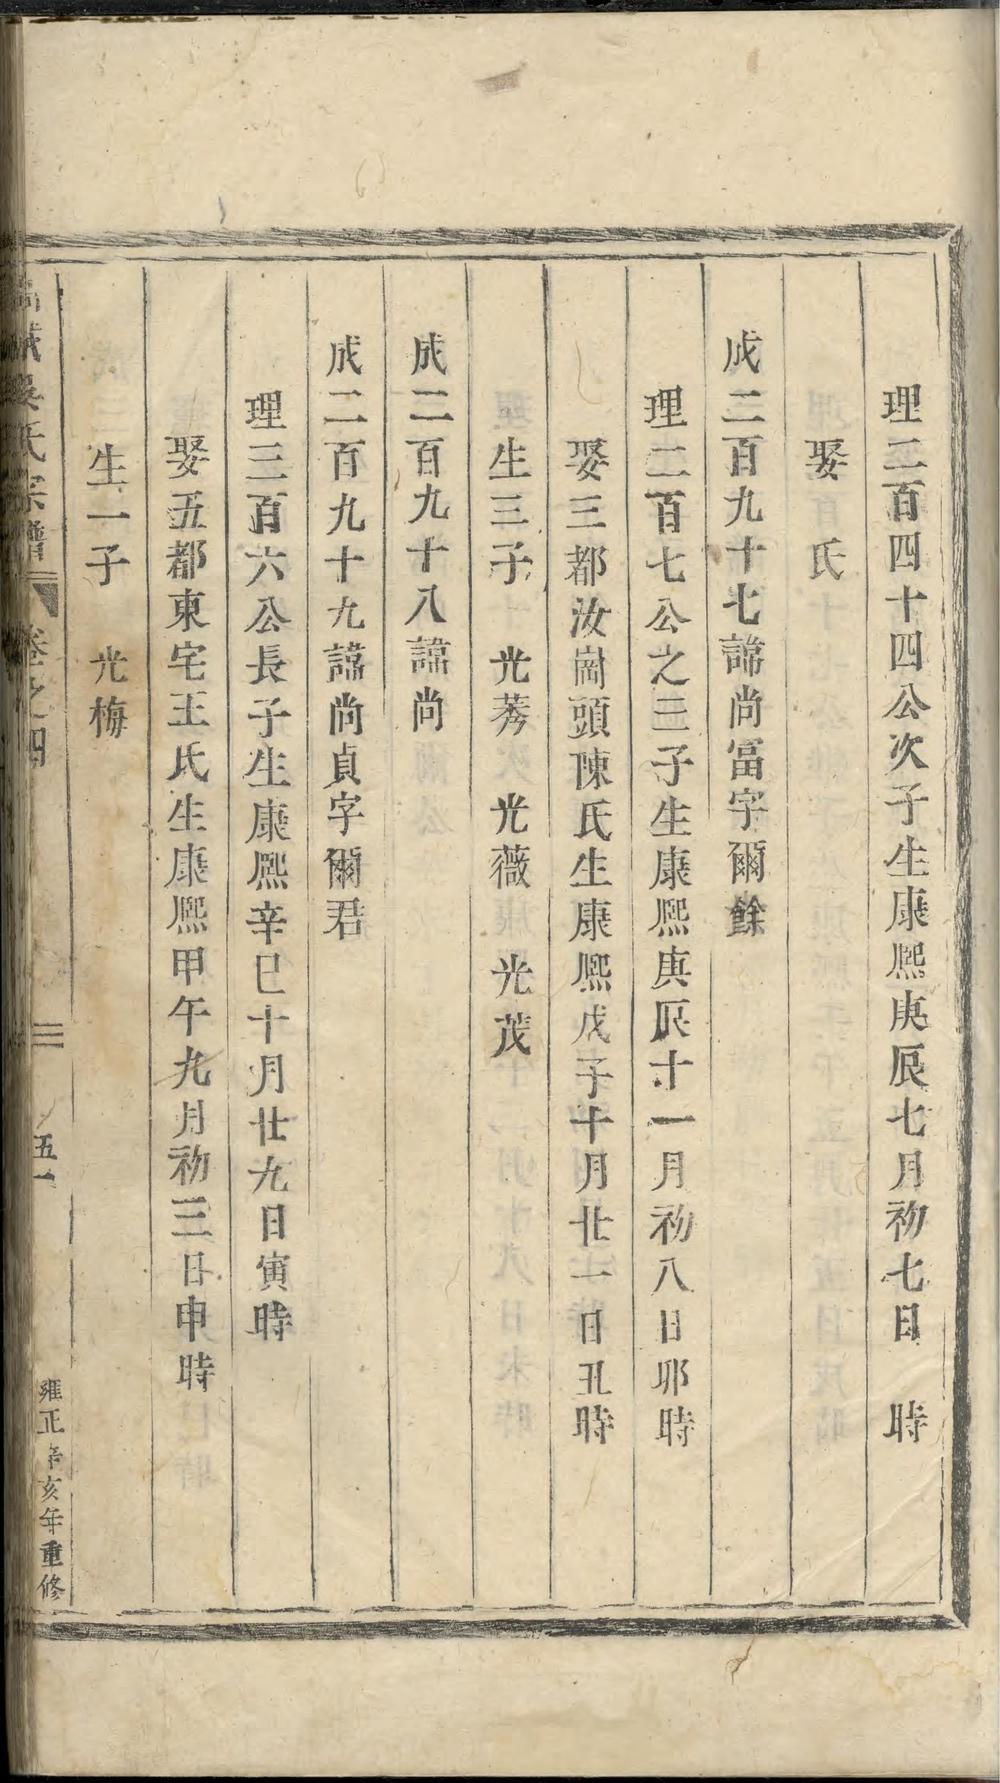 理二百四十四公次子生康熙庚辰七月初七日　時
娶　氏
成二百九十七諱尚富字爾餘
理二百七公之三子生康熙庚辰十一月初八日卯時
娶三都汝崗頭陳氏生康熙戊子十月廿一日丑時
生三子　光莠　光薇　光茂
成二百九十八諱尚
成二百九十九諱尚貞字爾君
理三百六公長子生康熙辛巳十月廿九日寅時
娶五都東宅王氏生康熙甲午九月初三日申時
生一子　光梅
吳氏宗譜　卷之四　三　五一　雍正辛亥年重修